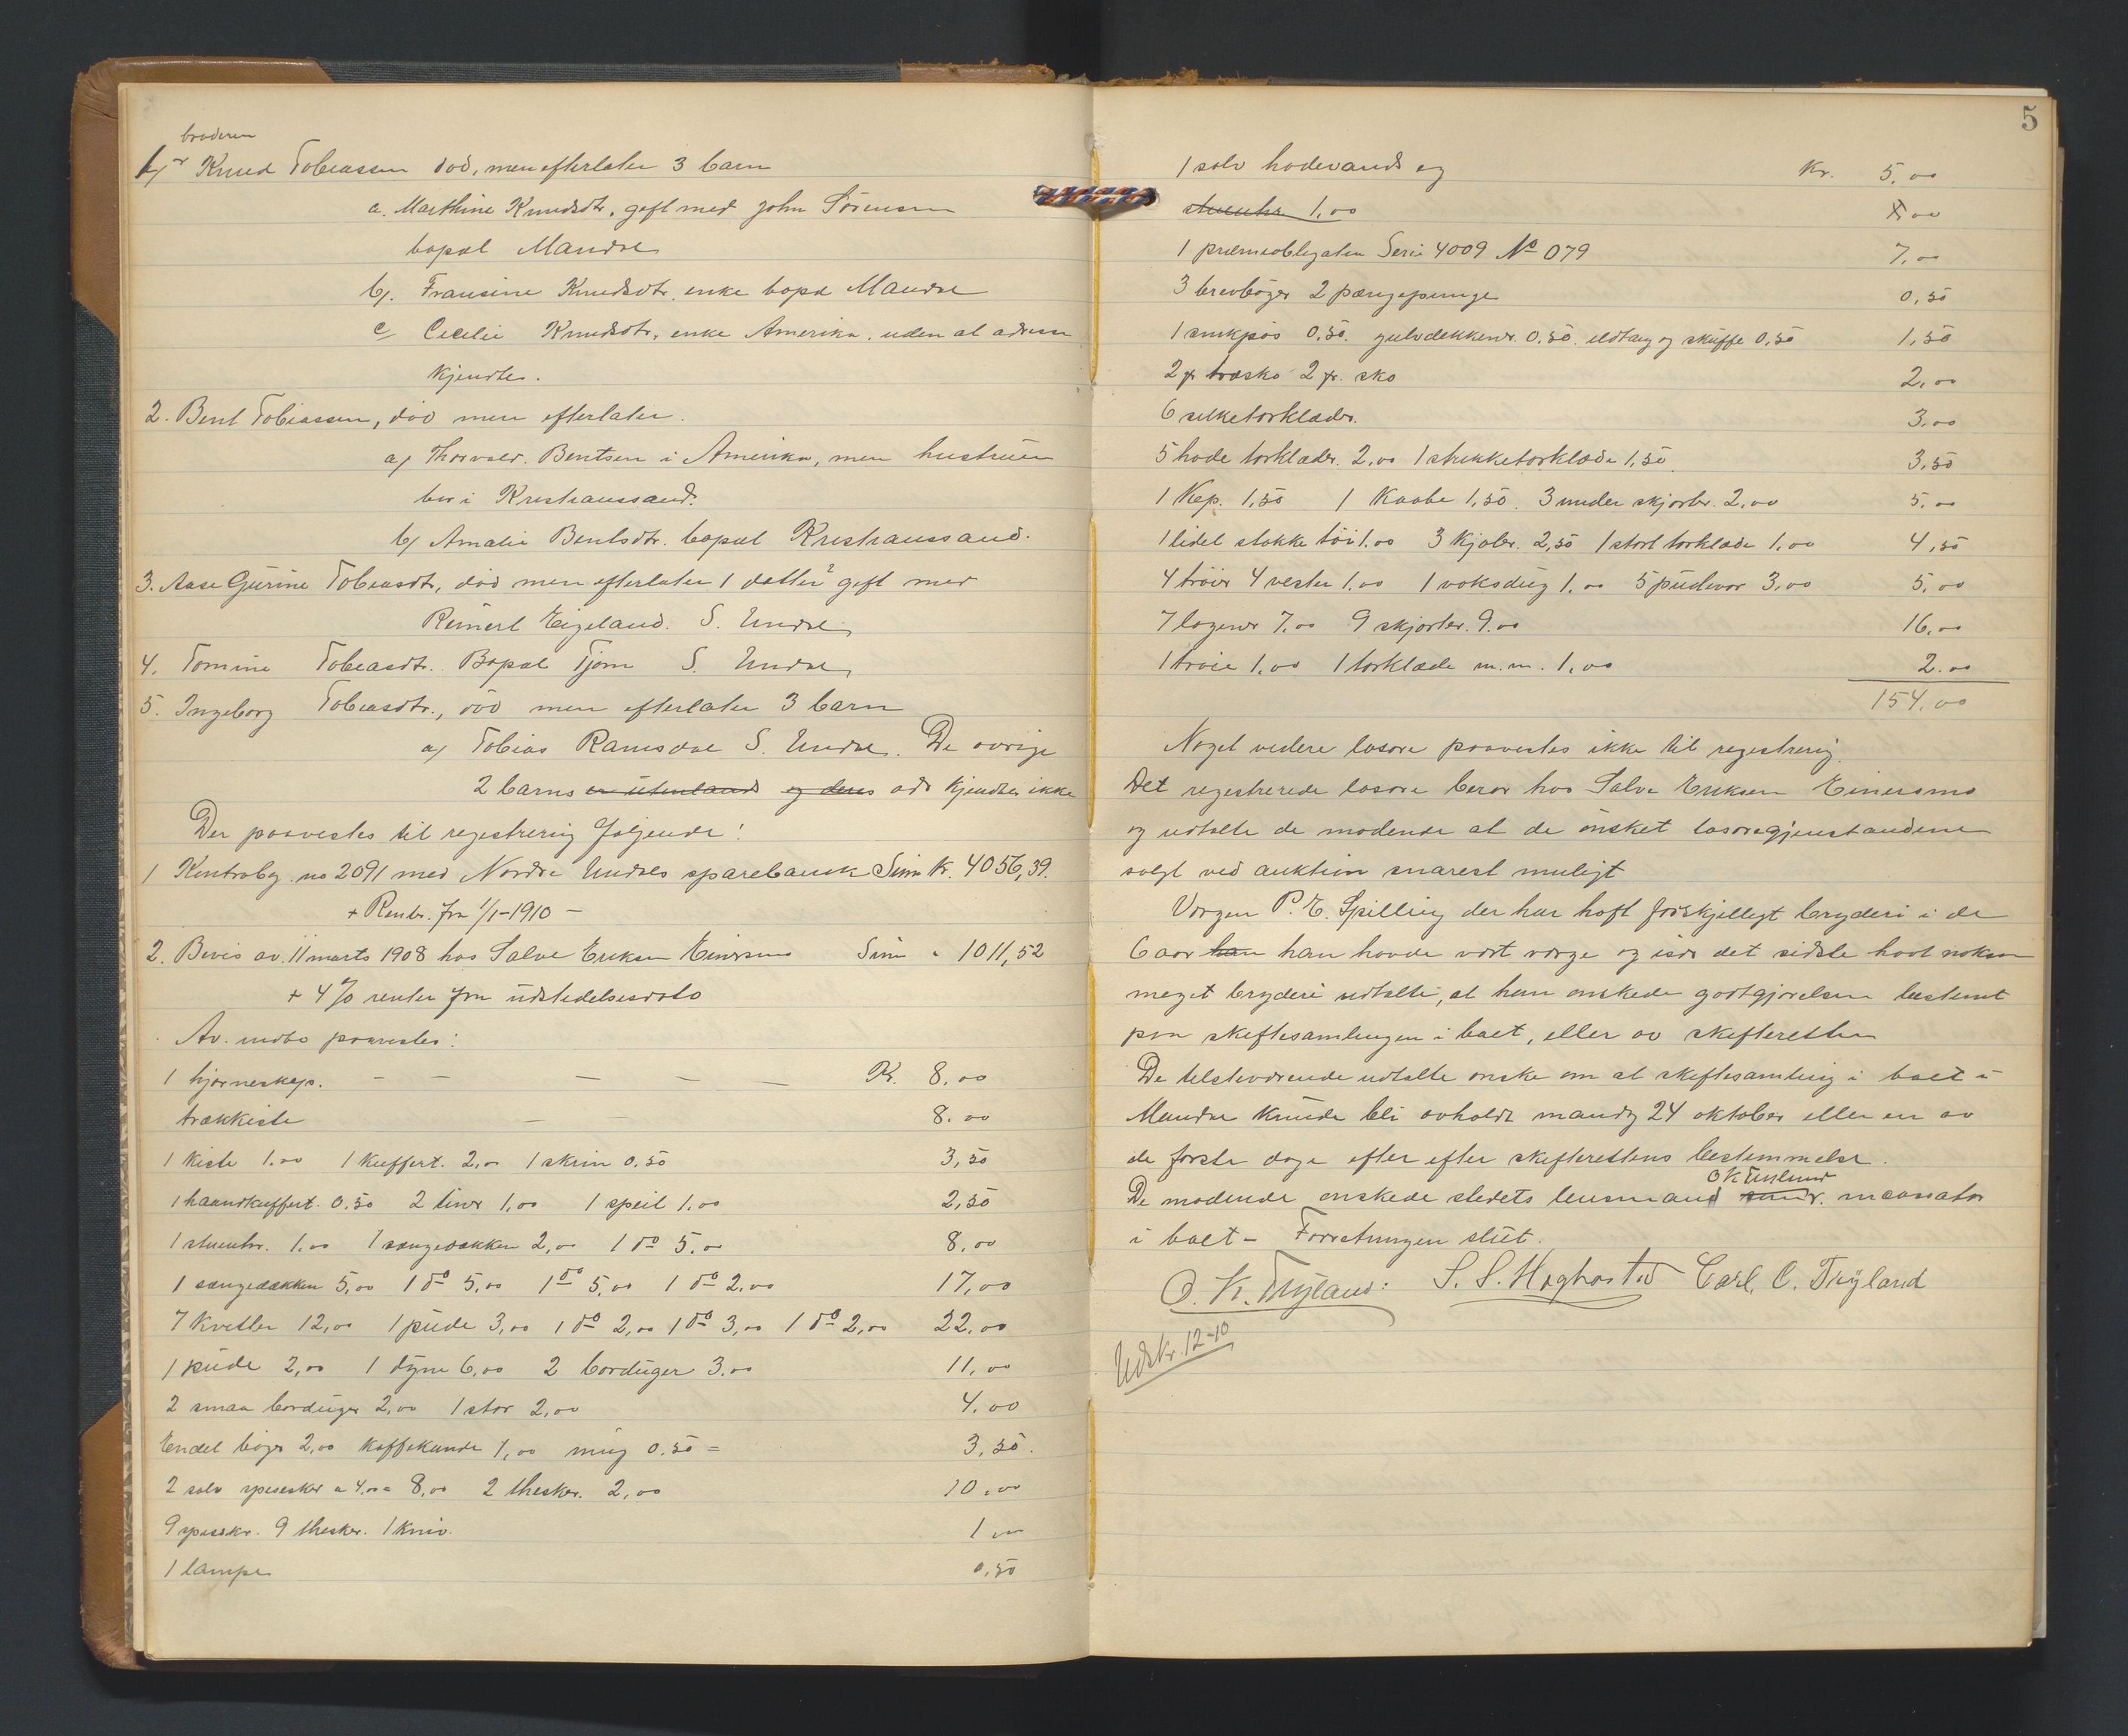 broderen
1, Knud Tobiassen död, men efterlater 3 barn
a. Marthine Knudsdtr, gift med John Sörensen
bopæl Mandal
b, Fransine Knudsdtr. enke bopæl Mandal
c, Cecelie Knudsdtr, enke Amerika. uden at adressen
kjendtes.
2. Bent Tobiassen, död men efterlater.
a, Thorvald. Bentsen i Amerika, men hustruen
bor i Kristianssand.
b, Amalie Bentsdtr. bopæl Kristianssand.
3. Aase Gurine Tobiasdtr, död men efterlater 1 datter? gift med
Reinert Eigeland. S. Undal
4. Tomine Tobiasdtr. Bopæl Tjom S. Undal
5. Ingeborg Tobiasdtr., död men efterlater 3 barn
a, Tobias Ramsdal S. Undal. De övrige
2 barns er utenlands og deres ads kjendtes ikke
Der paavistes til registrering følgende:
1 Kontrabog no 2091 med Nordre Undals sparebank Sum Kr. 4056,39.
+ Renter fra 1/1-1910 –
2. Bevis av 11 marts 1908 hos Salve Eriksen Einersmo Sum " 1011,52
+ 4 % renter fra udstedelsesdato
Av indbo paavistes:
1 hjørneskap. – – – – – Kr. 8,00
trækkiste – – 8.00
1 kiste 1.00 1 kuffert. 2,00 1 skrin 0.50 3,50
1 haandkuffert. 0.50 2 tiner 1,00 1 speil 1.00 2,50
1 stueuhr. 1.00 1 sengedækken 2,00 1 do 5.00 8,00
1 sengedækken 5,00 1 do 5,00 1 do 5,00 1 do 2,00 17,00
7 kvitler 12,00 1 pude 3,00 1 do 2,00 1 do 3,00 1 do 2,00 22,00
1 pude 2,00 1 dyne 6,00 2 borduger 3.00 11,00
2 smaa borduger 2,00 1 stor 2,00 4.00
Endel bøger 2,00 kaffekande 1,00 mug 0.50 = 3,50.
2 sølv spiseskeer a 4,00 = 8,00 2 theskeer. 2,00 10,00
9 spiseskr. 9 theskeer. 1 kniv. 1 00
1 lampe 0,50
5
1 sølv hodevands eg Kr. 5,00
stueuhr 1,00 1,00
1 præmieobligation Serie 4009 No 079 7,00
3 brevbøger 2 pængepunge 0,50
1 0,50. gulvdekkener. 0.50. ildtang og skuffe 0,50 1,50
2 pr træsko 2 pr. sko 2,00
6 silketørklæder. 3.00
5 hode tørklæder. 2,00 1 strikketørklæde 1,50. 3,50
1 Kap. 1,50 1 Kaabe 1,50. 3 under skjorter. 2,00 5,00
1 lidet stokke töi 1.00 3 Kjoler. 2,50 1 stort tørklæde 1,00 4,50
4 tröier 4 vester 1,00 1 voksdug 1,00 5 pudevar 3,00 5,00
7 lagener 7,00 9 skjorter. 9.00 16,00
1 tröie 1,00 1 törklæde m.m. 1,00 2.00
154,00
Noget videre løsøre paavistes ikke til registrering.
Det registrerede løsøre beror hos Salve Eriksen Einersmo
og udtalte de mødende at de ønsket løsøregjenstandene
solgt ved auktion snarest muligt
Vergen P. E. Spilling der har haft forskjelligt bryderi i de
6 aar han han havde vært verge og især det sidste havt noksaa
meget bryderi udtalte, at han ønskede godtgjørelsen bestemt
paa skiftesamlingen i boet, eller av skifteretten
De tilstedværende udtalte ønske om at skiftesamling i boet i
Mandal kunde bli avholdt mandag 24 oktober eller en av
de første dage efter efter skifterettens bestemmelse.
De mødende ønskede stedets lensmand O K Trylund incassator
i boet – Forretningen slut.
O. K. Tryland. S. S. Høghosted Carl. O. Tryland
Udskr. 12-10